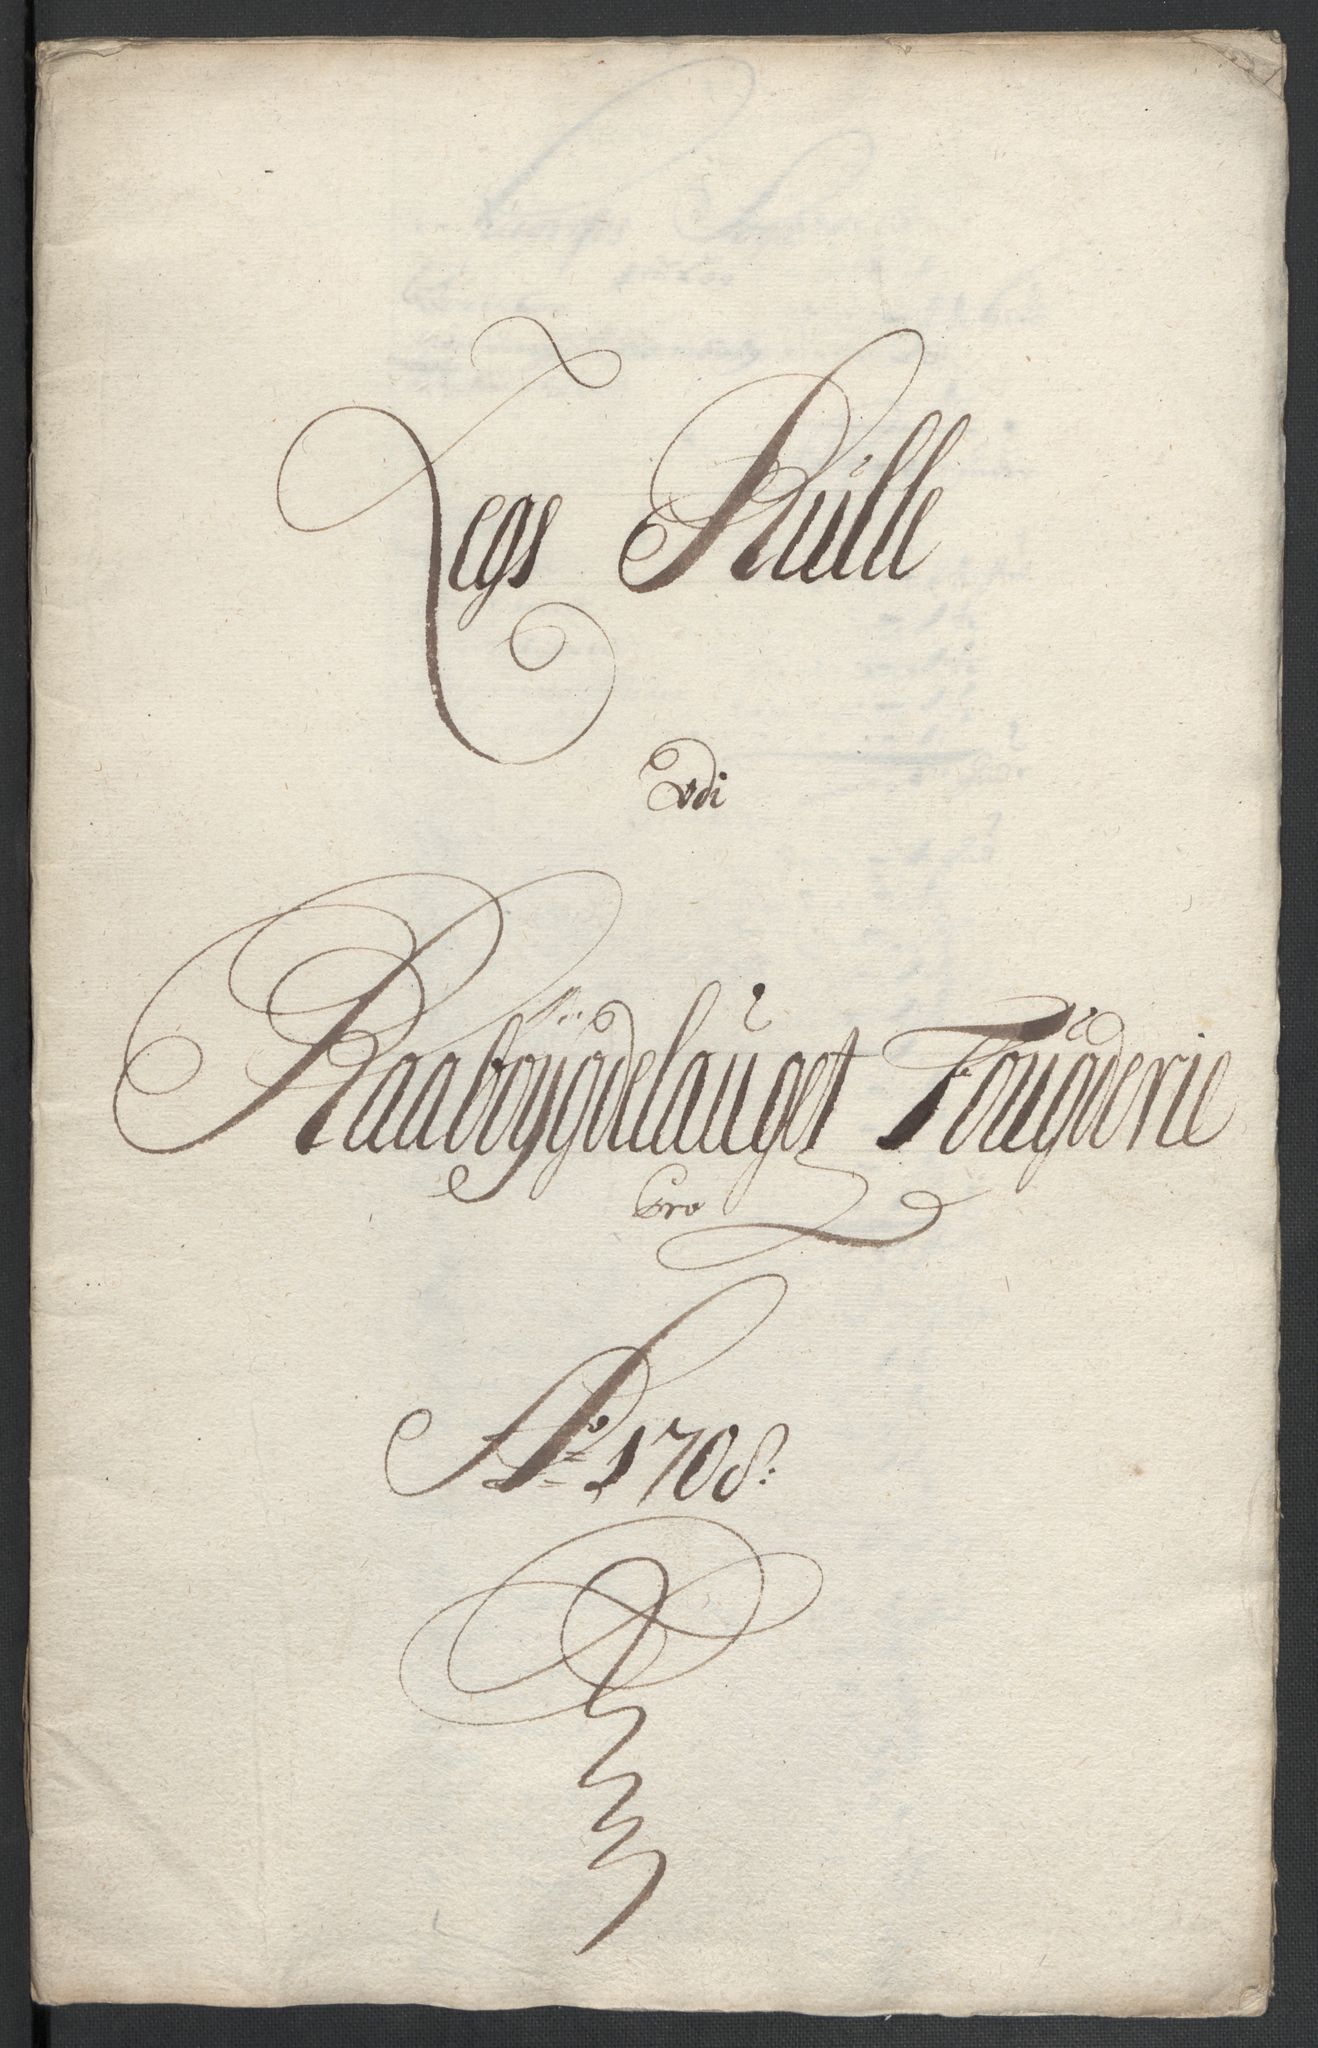 Legs Rulle
Udi
Raabøygdelauget Fougderie
pro
Ao 1708: